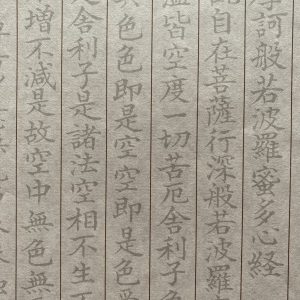 訶般若波羅蜜多心経
自在菩薩行深般若波羅
蘊皆空度一切苦厄舎利子
異色色即是空空即是色
是舎利子是諸法空相不生
増不減是故空中無色無